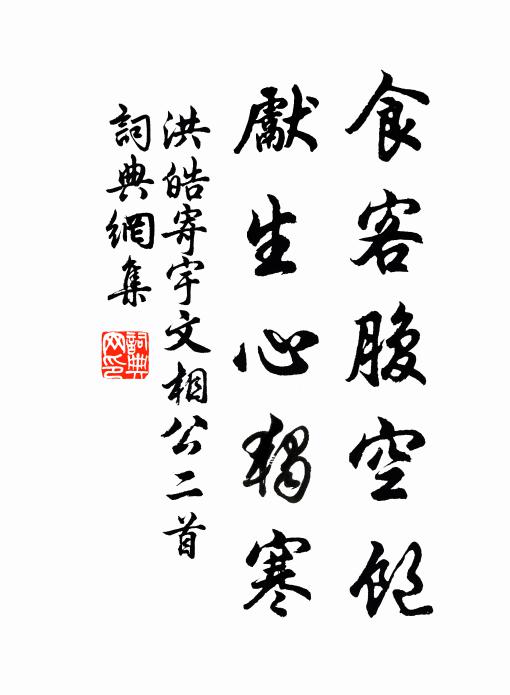 食客腹空飽
獻生心獨寒
洪皓寄宇文相公二首
詞典網集
詞典網印